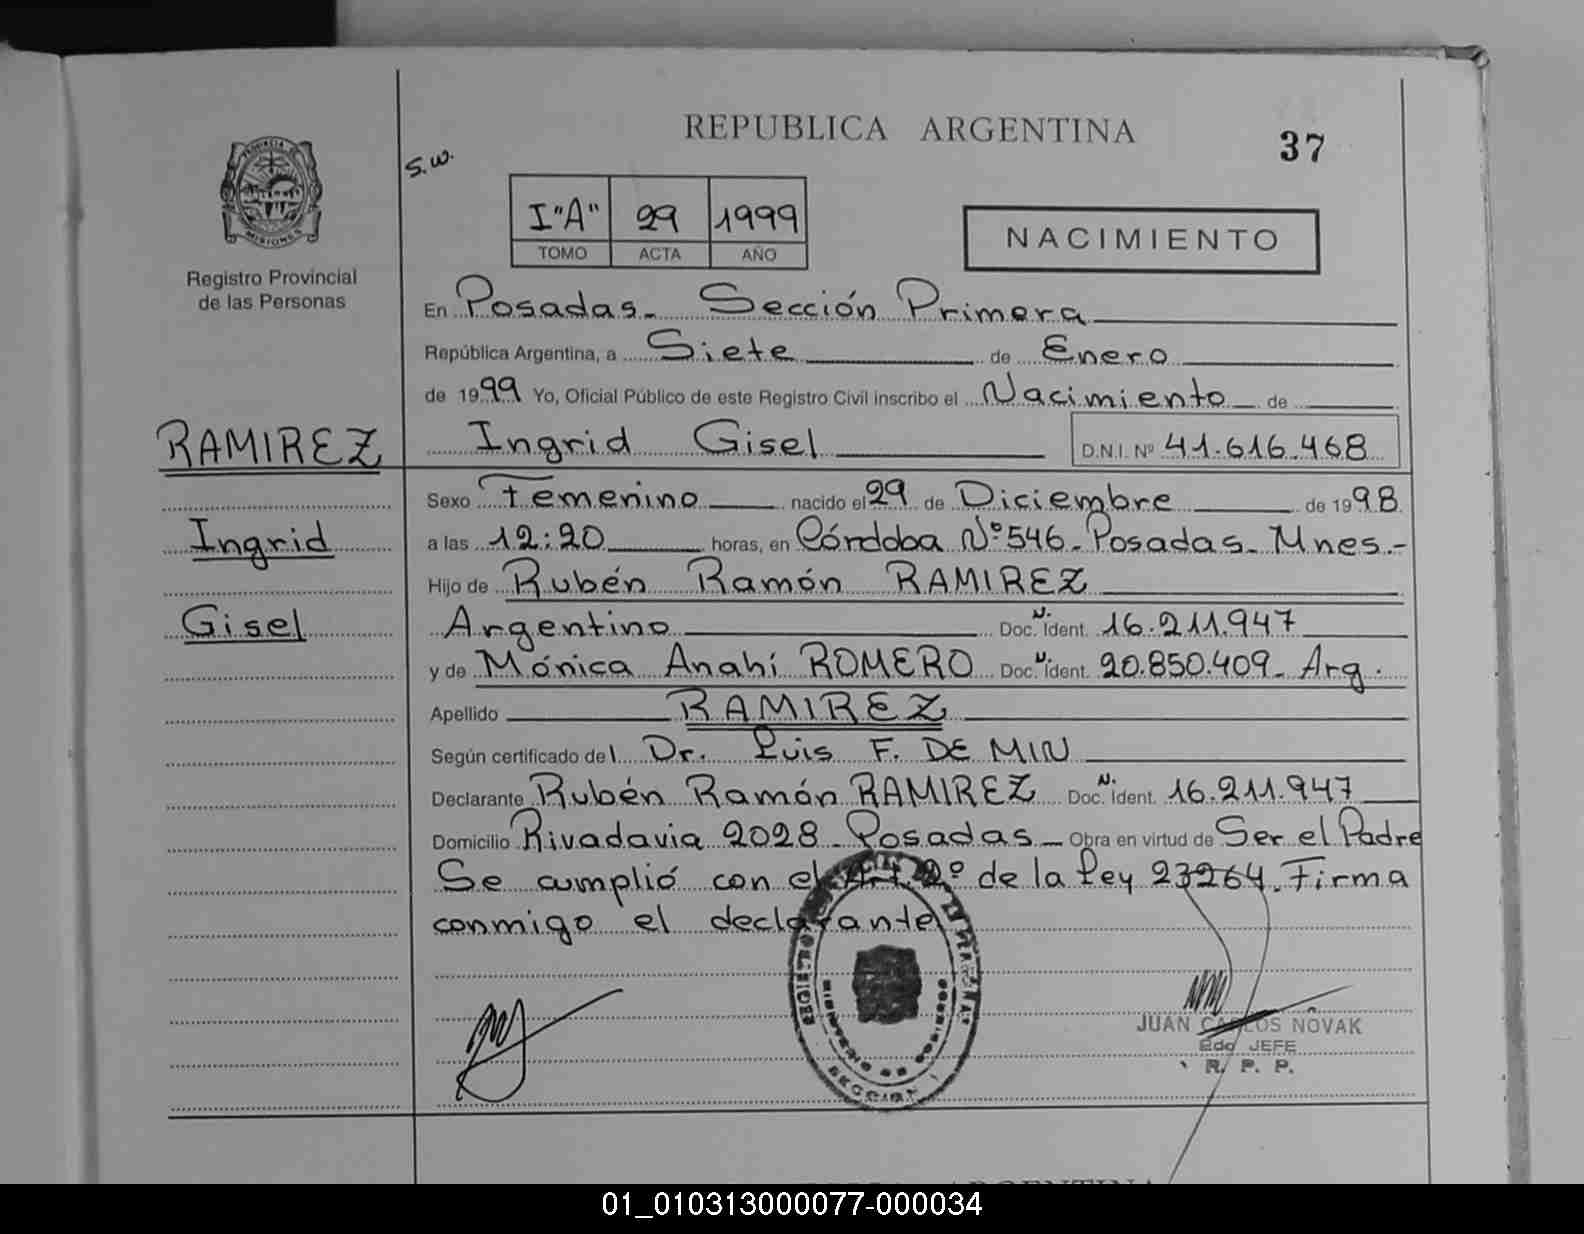 REPUBLICA ARGENTINA
37
S.W.
PROVINCIA DE
MISIONES
Registro Provincial
de las Personas
I"A" 29 1999
TOMO ACTA AÑO
NACIMIENTO
En Posadas. Sección Primera
República Argentina, a Siete de Enero
de 1999 Yo, Oficial Público de este Registro Civil inscribo el Nacimiento de
RAMIREZ
Ingrid Gisel D.N.I. Nº 41.616.468
Sexo Femenino nacido el 29 de Diciembre de 1998
Ingrid
a las 12:20 horas, en Córdoba Nº 546. Posadas. Mnes.-
Hijo de Rubén Ramón RAMIREZ
Gisel
Argentino Doc. N. Ident. 16.211.947
y de Mónica Anahí ROMERO Doc. N. Ident. 20.850.409. Arg.
Apellido RAMIREZ
Según certificado del Dr. Luis F. DE MIN
Declarante Rubén Ramón RAMIREZ Doc. N. Ident. 16.211.947
Domicilio Rivadavia 2028. Posadas Obra en virtud de Ser el Padre
Se cumplió con el Art. 2º de la Ley 23264. Firma
conmigo el declarante
JUAN CARLOS NOVAK
JEFE
R. P. P.
SECCION
01_010313000077-000034